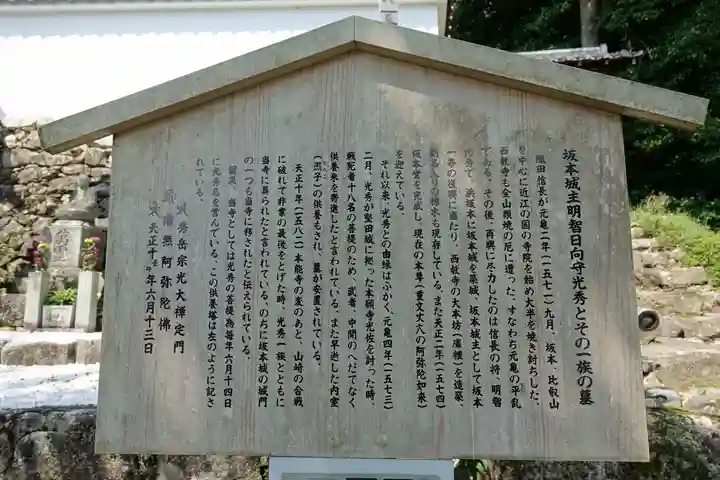 坂本城主明智日向守光秀とその一族の墓
織田信長が元亀二年(一五七一)九月、坂本、比叡山
を中心に近江の国の寺院を始め大半を焼き討ちした。
西教寺も全山類焼の厄に遭った。すなわち元亀の平乱
である。その後、再興に尽力したのは信長の将、明智
光秀で、浜坂本に坂本城を築城、坂本城主として坂本
一帯の復興に当たり、西教寺の大本坊(庫裡)を造築、
の棟木も現存している。また天正二年(一五七四)
本堂を完成し、現在の本尊(重文丈六の阿弥陀如来)
を迎えている。
それ以来、光秀との由縁はふかく、元亀四年(一五七三)
二月、光秀が堅田城に拠った本願寺光佐を討った時、
戦死者十八名の菩提のため、武者、中間のへだてなく
供養米を寄進したと言われている。また早逝した内室
(熙子)の供養もされ、墓が安置されている。
天正十年(一五八二)本能寺の変のあと、山崎の合戦
に破れて非業の最後をとげた時、光秀一族とともに
当寺に葬られたと言われている。のちに坂本城の城門
の一つも当寺に移されたと伝えられている。
爾来、当寺としては光秀の菩提為毎年六月十四日
に光秀忌を営んでいる。この供養塔は左のように記さ
れている。
秀岳宗光大禅定門
南無阿弥陀佛
天正十年六月十三日